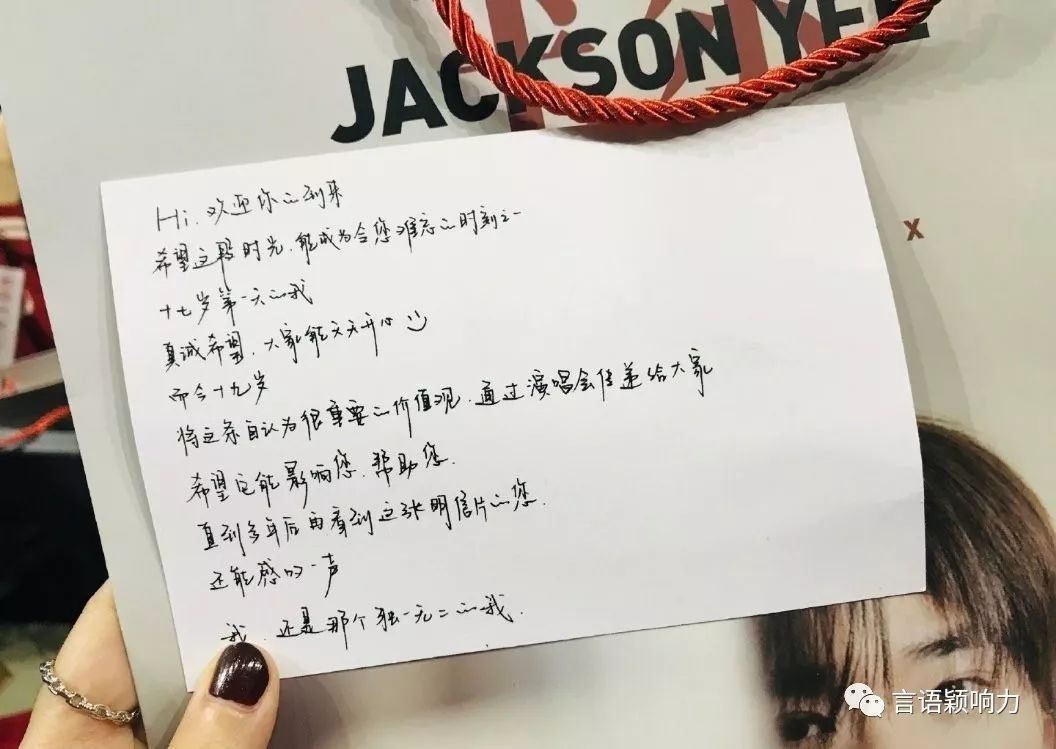 JACKSON YEE
x
Hi. 欢迎你的到来
希望这段时光.能成为令您难忘的时刻之一
十七岁第一天的我
真诚希望.大家能天天开心
而今十九岁
将这条自认为很重要的价值观.通过演唱会传递给大家
希望它能影响您.帮助您.
直到多年后再看到这张明信片的您.
还能感叹一声
我.还是那个独一无二的我.
言语颖响力